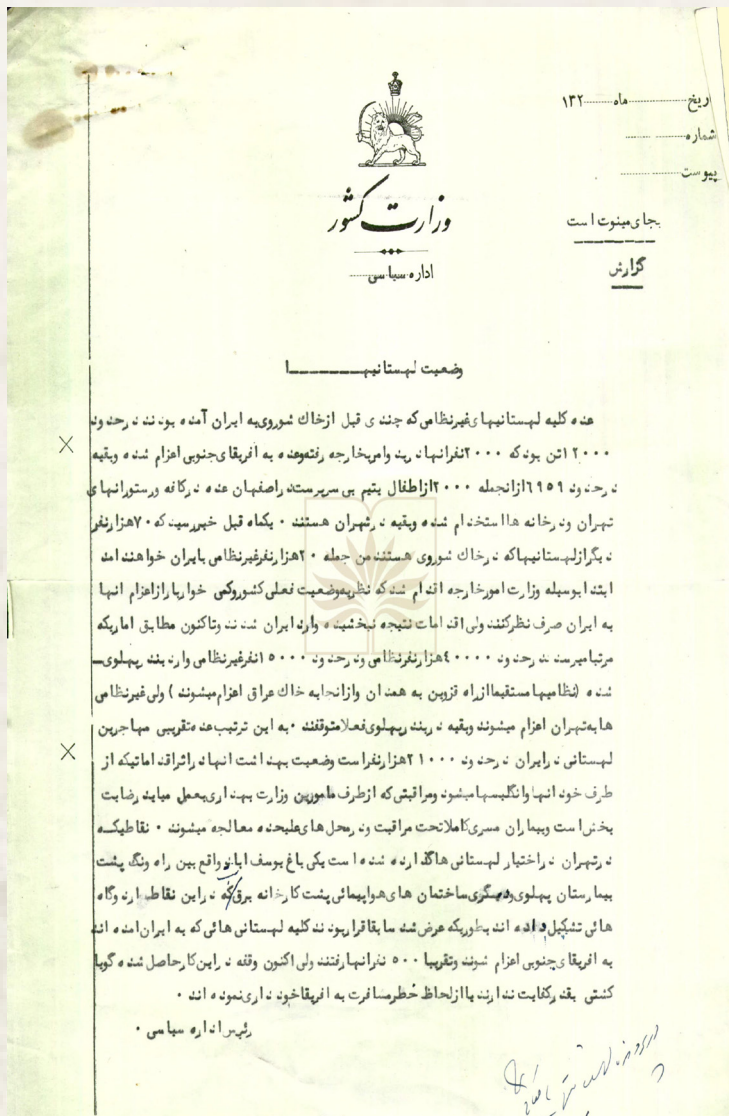 تاریخ ماه ۱۳۲
شماره
پیوست
وزارت کشور
اداره سیاسی
بجای مینوت است
گزارش
وضعیت لهستانیها
عده کلیه لهستانیهای غیرنظامی که چندی قبل ازخاك شوروی به ایران آمده بودند درحدود
۱۲۰۰۰ تن بود که ۲۰۰۰نفرانها بخارجه رفته وعده به افریقای جنوبی اعزام شده وبقیه
درحدود ۶۹۵۹ ازانجمله ۲۰۰۰ ازاطفال یتیم بی سرپرست دراصفهان عده درکافه ورستورانهای
تهران ودرخانه هااستخدام شده وبقیه درتهران هستند ۰ یکماه قبل خبررسید که ۷۰هزارنفر
دیگرازلهستانیهاکه درخاك شوروی هستند من جمله ۲۰هزارنفرغیرنظامی بایران خواهند امد
ابتدا بوسیله وزارت امورخارجه اقدام شد که نظربه وضعیت فعلی کشوروکمی خواربارازاعزام انها
به ایران صرف نظرکنند ولی اقدامات نتیجه نبخشیده وارد ایران شدند وتاکنون مطابق امارىکه
مرتبا میرسد درحدود ۴۰۰۰۰هزارنفرنظامی ودرحدود ۱۵۰۰۰نفرغیرنظامی واردبندرپهلوی
شده (نظامیها مستقیما ازراه قزوین به همدان وازانجا به خاك عراق اعزام میشوند ) ولی غیرنظامی
هابه تهران اعزام میشوند وبقیه دربندرپهلوی فعلا متوقفند ۰ به این ترتیب عده تقریبی مهاجرین
لهستانی درایران درحدود ۲۱۰۰۰هزارنفراست وضعیت بهداشت انها دراثراقداماتیکه از
طرف خود انها وانگلیسها میشود ومراقبتی که ازطرف مامورین وزارت بهداری بعمل میاید رضایت
بخش است وبیماران مسری کاملا تحت مراقبت ودرمحل های علیحده معالجه میشوند ۰ نقاطیکه
درتهران دراختیار لهستانی هاگذارده شده است یکی باغ یوسف اباد واقع بین راه ونك پشت
بیمارستان پهلوی ودیگری ساختمان های هواپیمائی پشت کارخانه برق که دراین نقاط اردوگاه
هائی تشکیل داده اند بطوریکه عرض شد سابقا قراربود ند کلیه لهستانی هائی که به ایران امده اند
به افریقای جنوبی اعزام شوند وتقریبا ۵۰۰ نفرانها رفتند ولی اکنون وقفه دراین کارحاصل شده گویا
کشتی بقدرکفایت ندارند یا ازلحاظ خطرمسافرت به افریقا خودداری نموده اند ۰
رئیس اداره سیاسی ۰